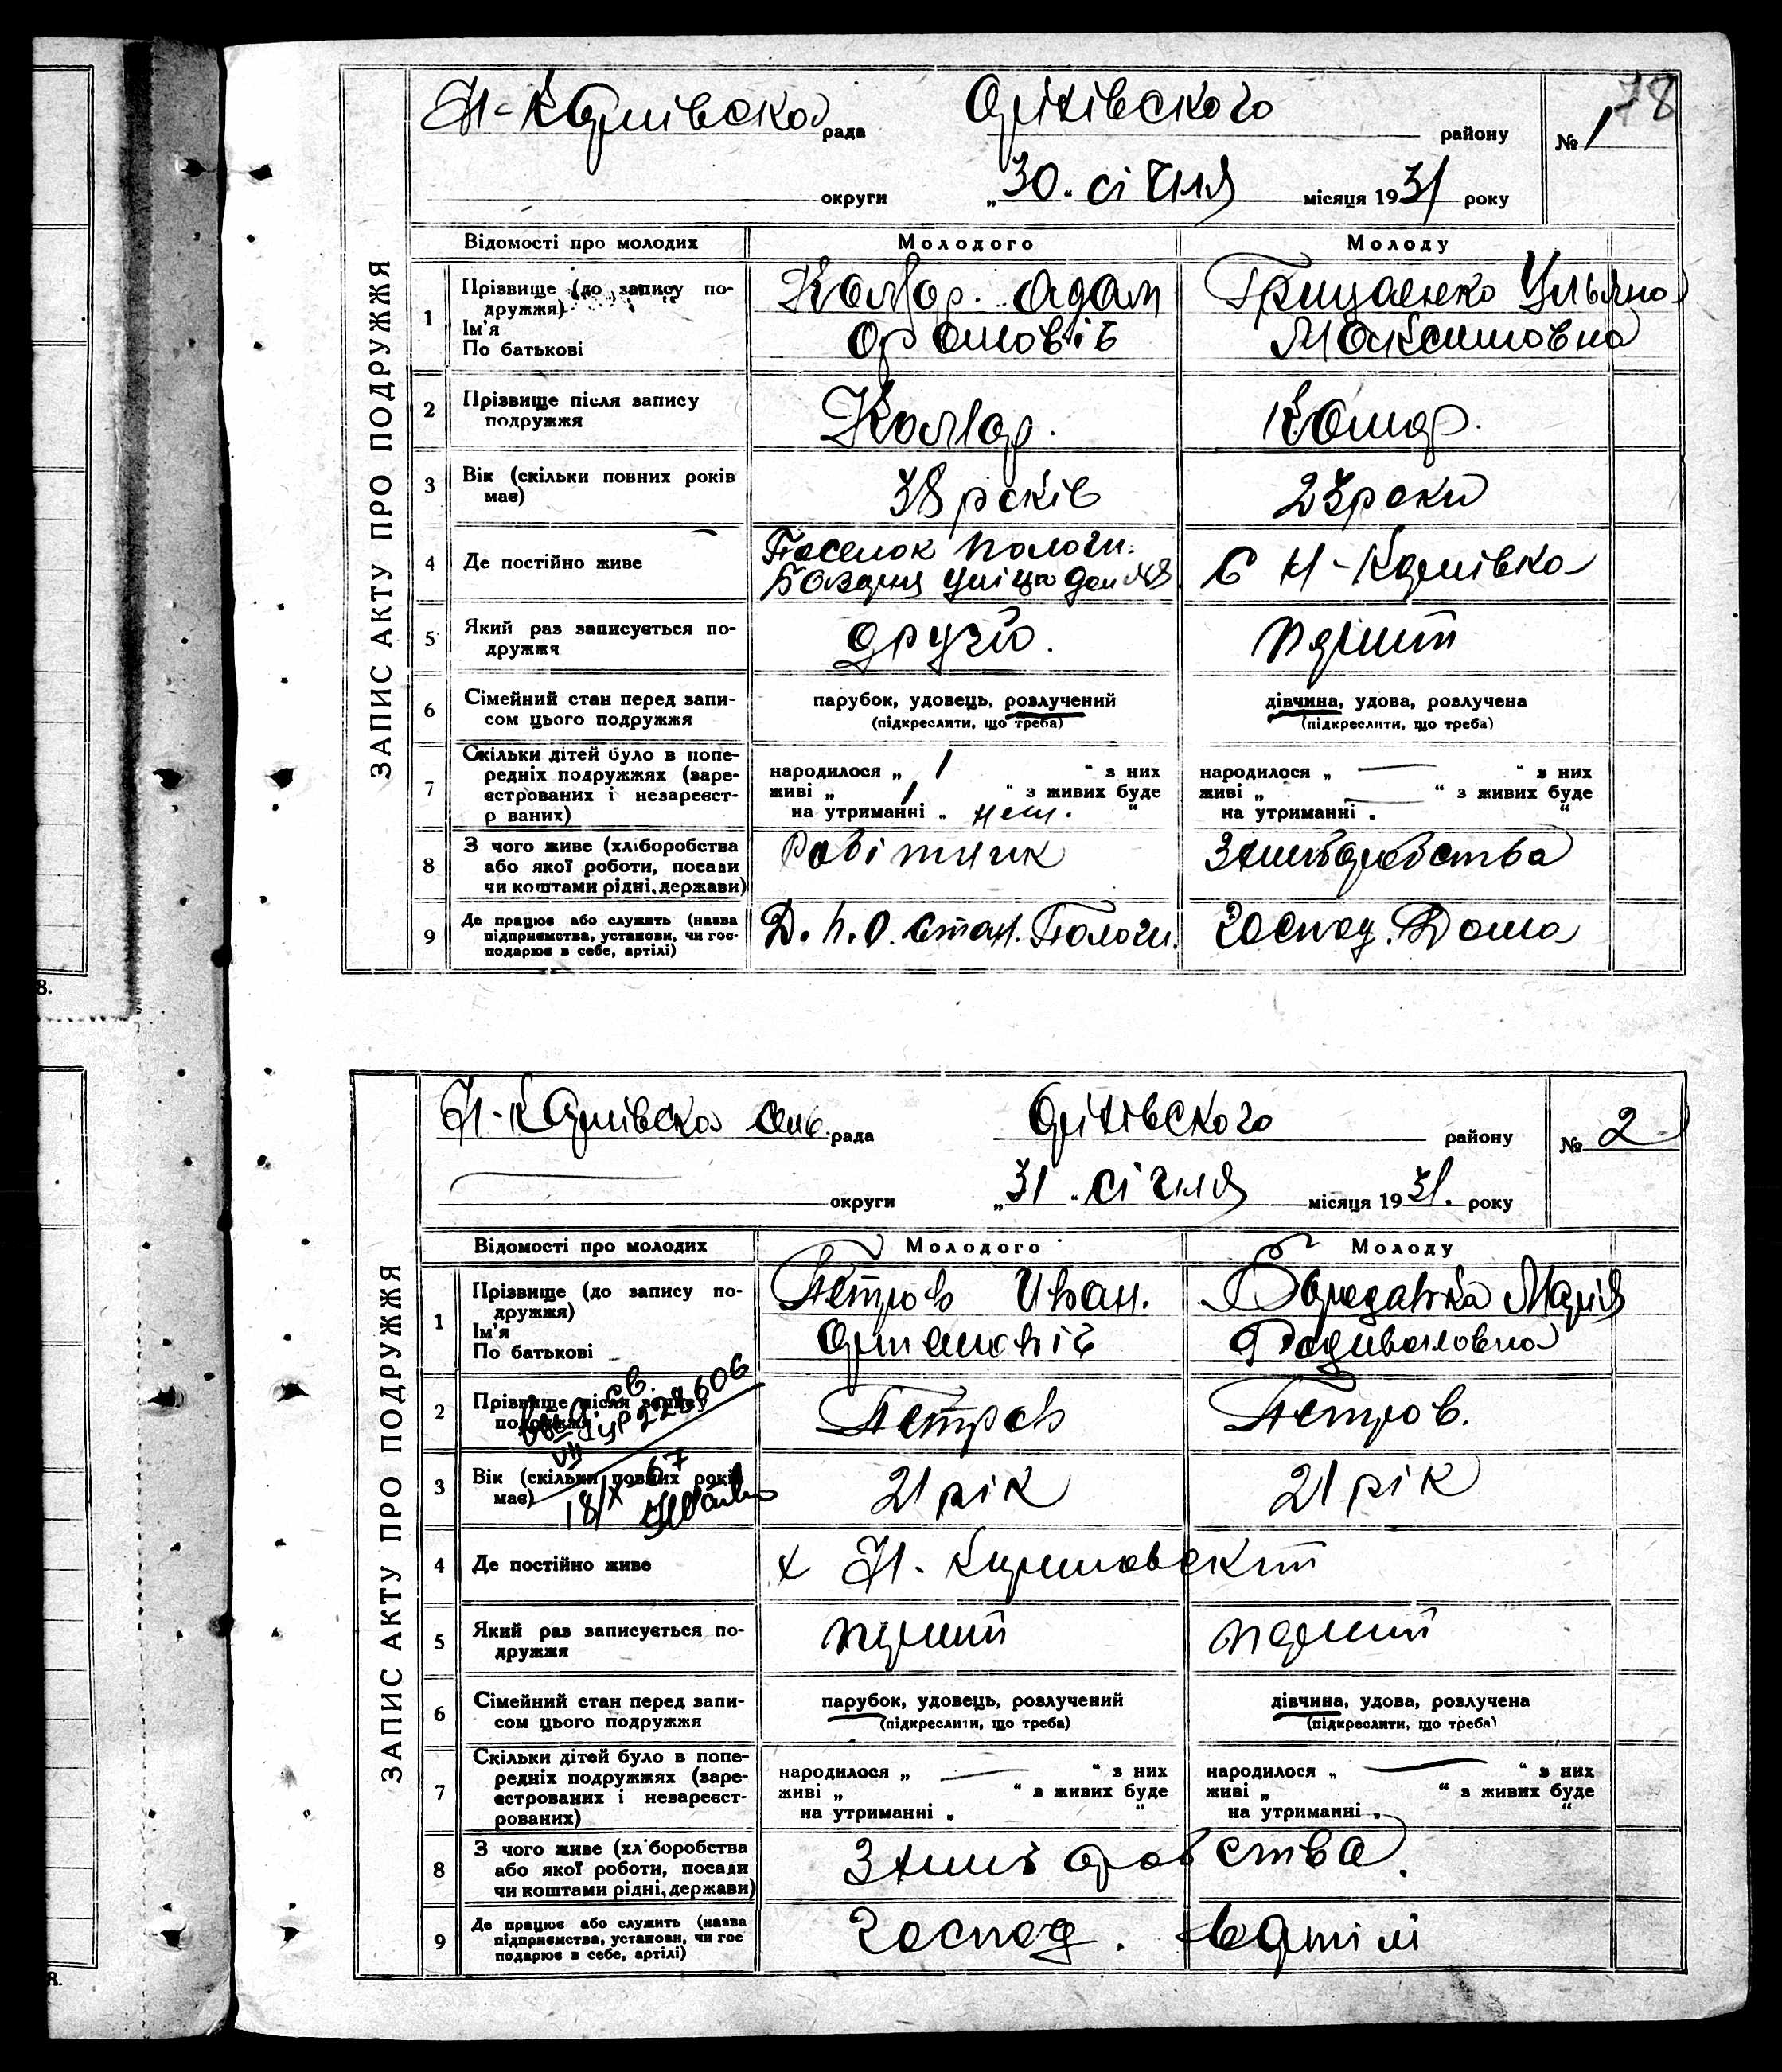 78
Н-Карлівска рада Оріхівского району № 1
округи „30“ січня місяця 1931 року
ЗАПИС АКТУ ПРО ПОДРУЖЖЯ
Відомості про молодих Молодого Молоду
1 Прізвище (до запису по-
дружжя)
Ім'я
По батькові
Комар. Адам
Грицаенко Ульяна
Максимовна
2 Прізвище після запису
подружжя
Комар.
Комар.
3 Вік (скільки повних років
має)
38 років
23 роки
4 Де постійно живе
Поселок Пологи.
Базарня уліца дом
С Н-Карлівка
5 Який раз записується по-
дружжя
другій.
перший
6 Сімейний стан перед запи-
сом цього подружжя
парубок, удовець, розлучений
(підкреслити, що треба)
дівчина, удова, розлучена
(підкреслити, що треба)
7 Скільки дітей було в попе-
редніх подружжях (заре-
єстрованих і незареєст-
р ваних)
народилося „ 1 “ з них
живі „ 1 “ з живих буде
на утриманні „ нет. “
народилося „ — “ з них
живі „ — “ з живих буде
на утриманні „ “
8 З чого живе (хліборобства
або якої роботи, посади
чи коштами рідні, держави)
Робітник
З хліборобства
9 Де працює або служить (назва
підприємства, установи, чи гос-
подарює в себе, артілі)
Д. п. О. стан. Пологи.
господ. Дома
8.
Н-Карлівска сель. рада Оріхівского району № 2
округи „31“ січня місяця 1931. року
ЗАПИС АКТУ ПРО ПОДРУЖЖЯ
Відомості про молодих Молодого Молоду
1 Прізвище (до запису по-
дружжя)
Ім'я
По батькові
Петров Иван.
Артемовіч
Марія
Родивоновна
2 Прізвище після запису
подружжя
св.
228606
Петров
Петров.
3 Вік (скільки повних років
має)
18/X-67
21 рік
21 рік
4 Де постійно живе
х Н-
5 Який раз записується по-
дружжя
перший
перший
6 Сімейний стан перед запи-
сом цього подружжя
парубок, удовець, розлучений
(підкреслити, що треба)
дівчина, удова, розлучена
(підкреслити, що треба)
7 Скільки дітей було в попе-
редніх подружжях (заре-
єстрованих і незареєст-
рованих)
народилося „ — “ з них
живі „ “ з живих буде
на утриманні „ “
народилося „ — “ з них
живі „ “ з живих буде
на утриманні „ “
8 З чого живе (хл боробства
або якої роботи, посади
чи коштами рідні, держави)
З хліборобства.
9 Де працює або служить (назва
підприємства, установи, чи гос
подарює в себе, артілі)
господ. в артілі
8.